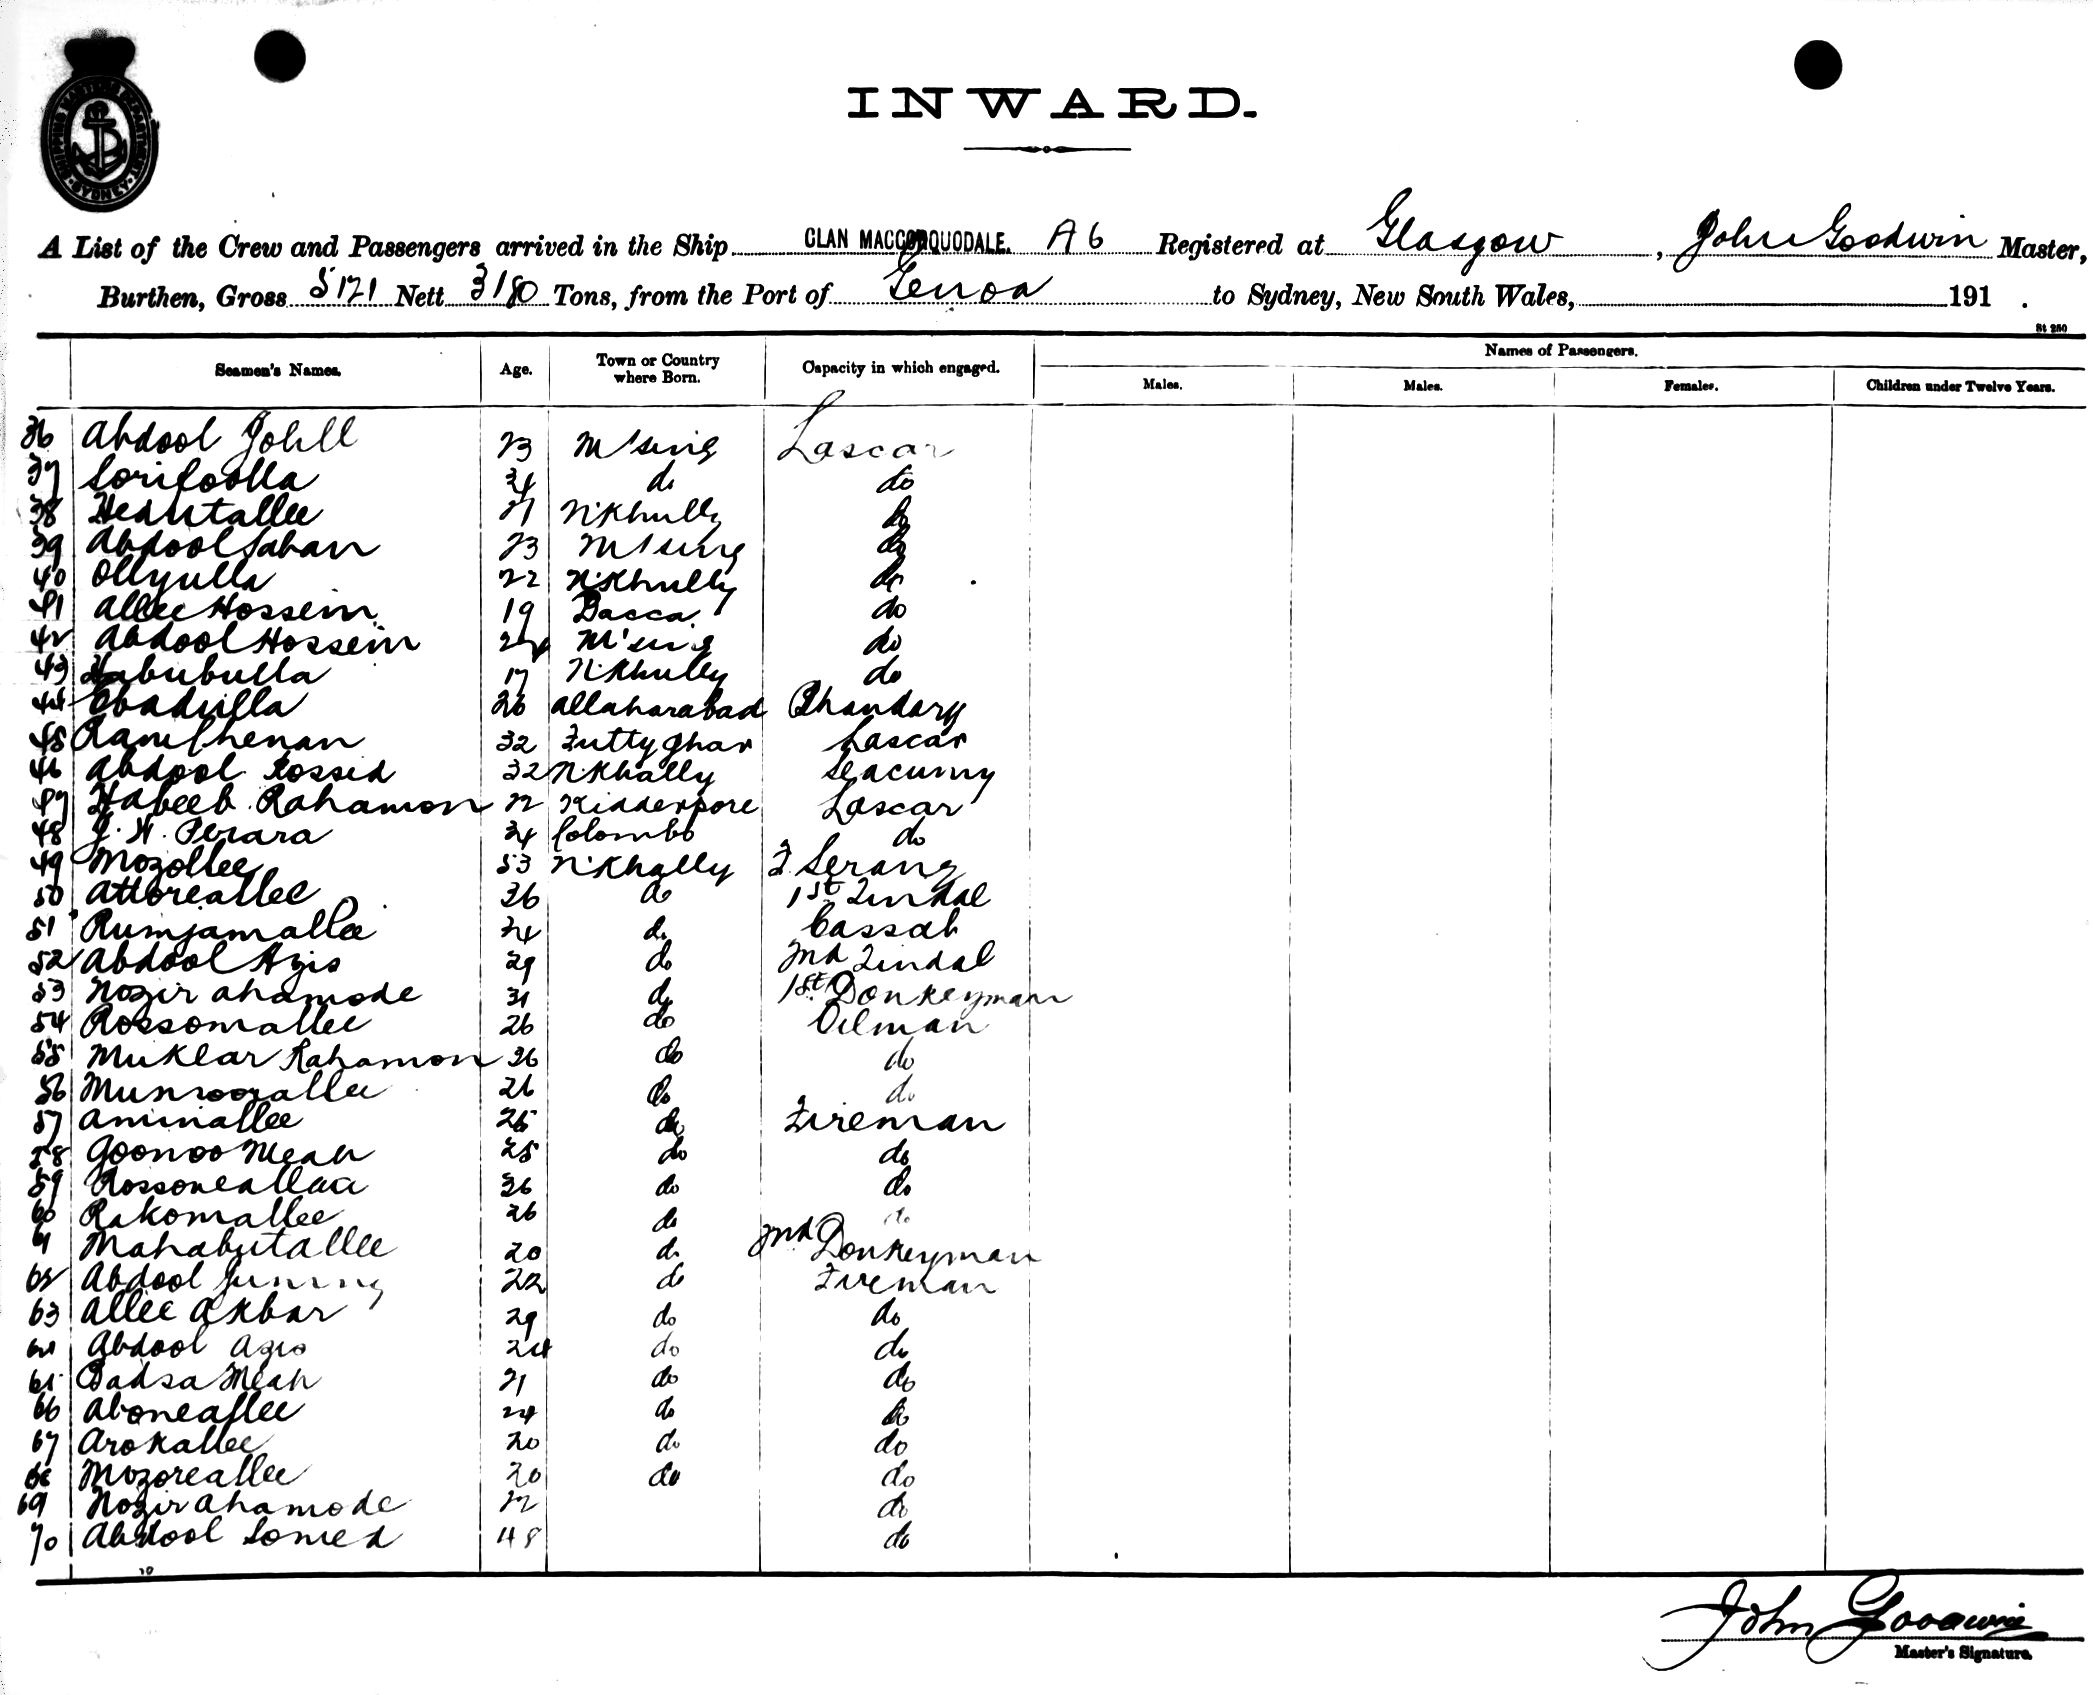 SHIPPING MASTER'S DEPARTMENT
SYDNEY
INWARD.
A List of the Crew and Passengers arrived in the Ship CLAN MACCORQUODALE. A6 Registered at Glasgow, John Goodwin Master,
Burthen, Gross 5121 Nett 3180 Tons, from the Port of Genoa to Sydney, New South Wales, 191 .
St 250
Seamen's Names. Age. Town or Country where Born. Capacity in which engaged. Names of Passengers.
Males. Males. Females. Children under Twelve Years.
36 Abdool Johll 23 M'sing Lascar
37 Sorifoolla 34 do do
38 Hedutallee 21 N'Khully do
39 Abdool Soban 23 M'sing do
40 Ollyulla 22 N'Khully do
41 Allee Hossein 19 Dacca do
42 Abdool Hossein 24 M'sing do
43 Habubulla 17 N'Khully do
44 Obadulla 26 Allaharabad Bhandary
45 Ramchenan 32 Futtyghar Lascar
46 Abdool Rossid 32 N'Khally Seacunny
47 Habeeb Rahamon 22 Kidderpore Lascar
48 J. H. Perara 34 Colombo do
49 Mozollee 53 N'Khally F. Serang
50 Attoreallee 36 do 1st Tindal
51 Rumjamallee 34 do Cassab
52 Abdool Azis 29 do 2nd Tindal
53 Nozir Ahamode 31 do 1st Donkeyman
54 Rossomallee 26 do Oilman
55 Muklar Rahamon 36 do do
56 Munsoorallee 26 do do
57 Aminallee 25 do Fireman
58 Goonoo Meah 25 do do
59 Rossoneallee 36 do do
60 Rakomallee 26 do do
61 Mahabutallee 20 do 2nd Donkeyman
62 Abdool 22 do Fireman
63 Allee Akbar 29 do do
64 Abdool Azis 24 do do
65 Badsa Meah 21 do do
66 Aboneallee 24 do do
67 Arokallee 20 do do
68 Mozoreallee 20 do do
69 Nozir Ahamode 22 do
70 Abdool Somed 48 do
John Goodwin
Master's Signature.